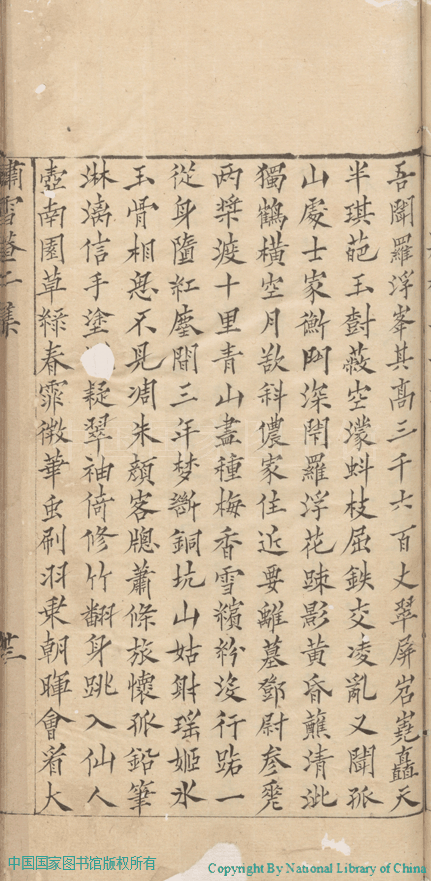 吾聞羅浮峯其高三千六百丈翠屏岧嶤矗天
半琪葩玉樹蔽空濛蚪枝屈鉄交凌亂又聞孤
山處士家衡門深閇羅浮花踈影黄昏蘸清泚
獨鶴橫空月欲斜儂家住近要離墓鄧尉參差
两槳渡十里青山盡種梅香雪繽紛没行踏一
從身墮紅塵間三年梦斷銅坑山姑射瑶姬氷
玉骨相思不見凋朱顔客牕蕭條旅懷孤鉛筆
淋漓信手塗疑翠袖倚修竹翻身跳入仙人
壺南園草緑春霏微華虫刷羽乘朝暉會看大
嘯雪菴二集
中国国家图书馆版权所有
Copyright By National Library of China